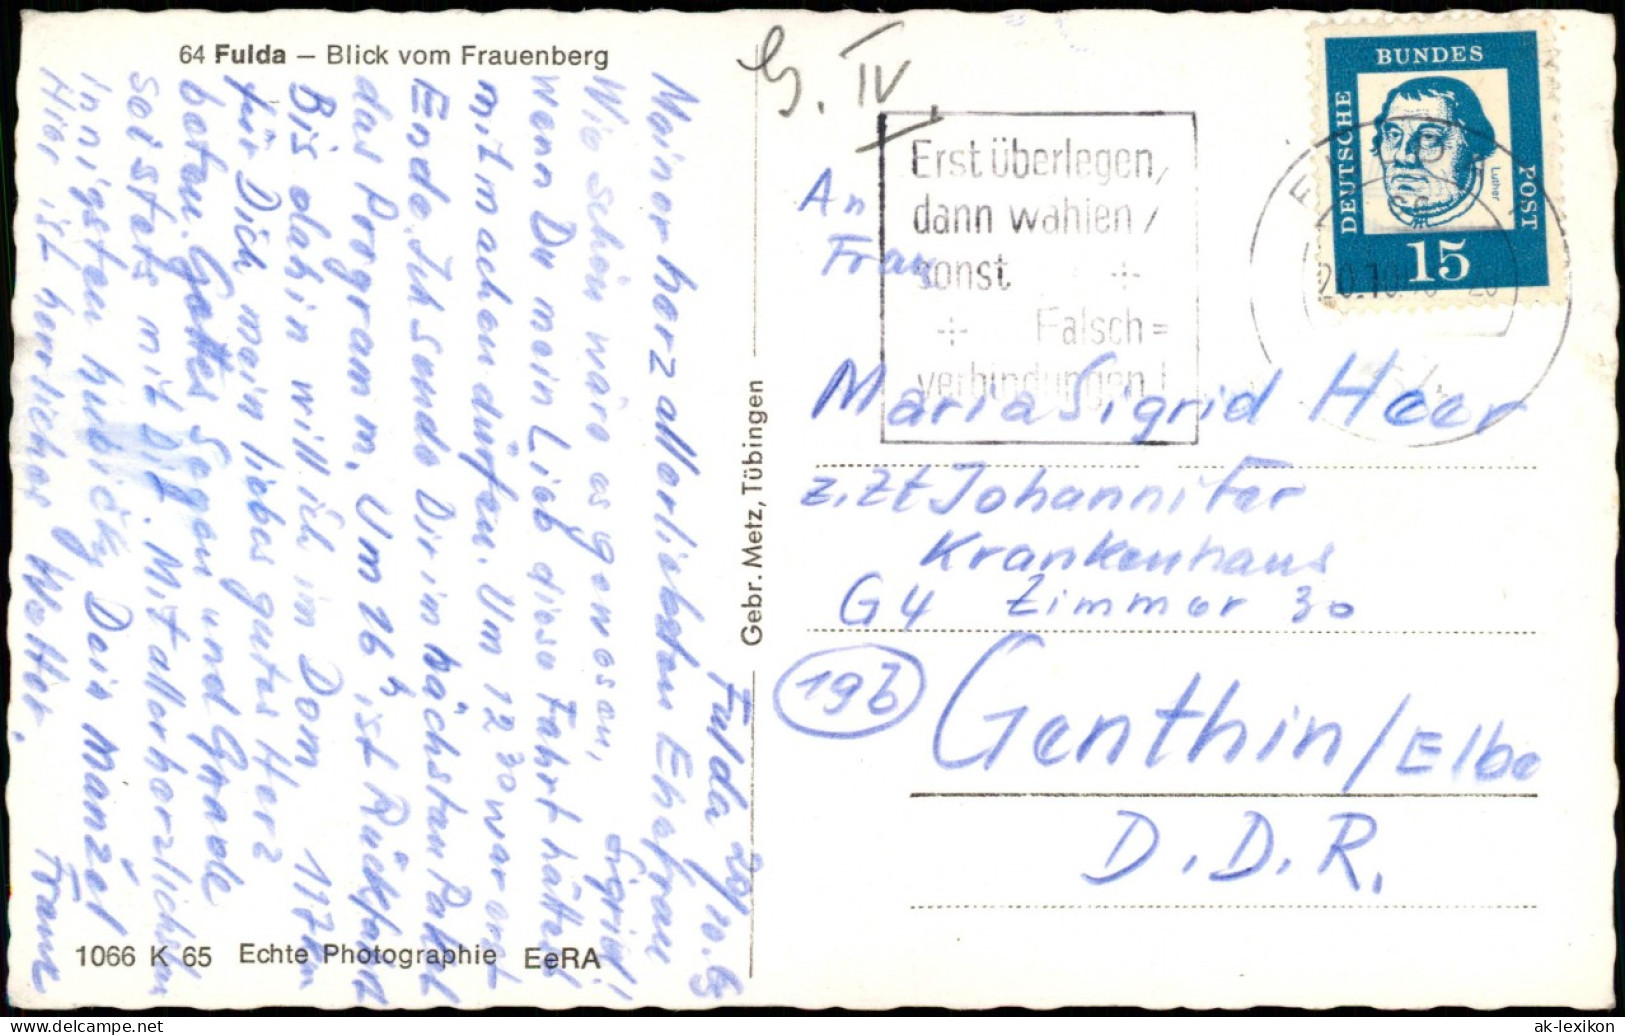 64 Fulda — Blick vom Frauenberg
Fulda 20/10.
Meiner herzallerliebsten Ehefrau
Sigrid!
Wie schön wäre es gewesen,
wenn Du mein Lieb diese Fahrt hättest
mitmachen dürfen. Um 12 30 war erst
Ende. Ich sende Dir im nächsten Paket
das Programm. Um 16 h ist Rückfahrt
Bis dahin will ich im Dom
für Dich mein liebes gutes Herz
beten. Gottes Segen und Gnade
sei stets mit Dir. Mit allerherzlichsten
innigsten Dein Manzel
Hier ist herrliches Wetter.
117 km
Franz
1066 K 65 Echte Photographie EeRA
Gebr. Metz, Tübingen
G. IV.
Erst überlegen,
dann wählen,
sonst
Falsch=
verbindungen!
DEUTSCHE
BUNDES
POST
Luther
15
An
Frau
Maria Sigrid Heer
z. Zt Johanniter
Krankenhaus
G4 Zimmer 30
19b
Genthin/Elbe
D. D. R.
ak-lexikon